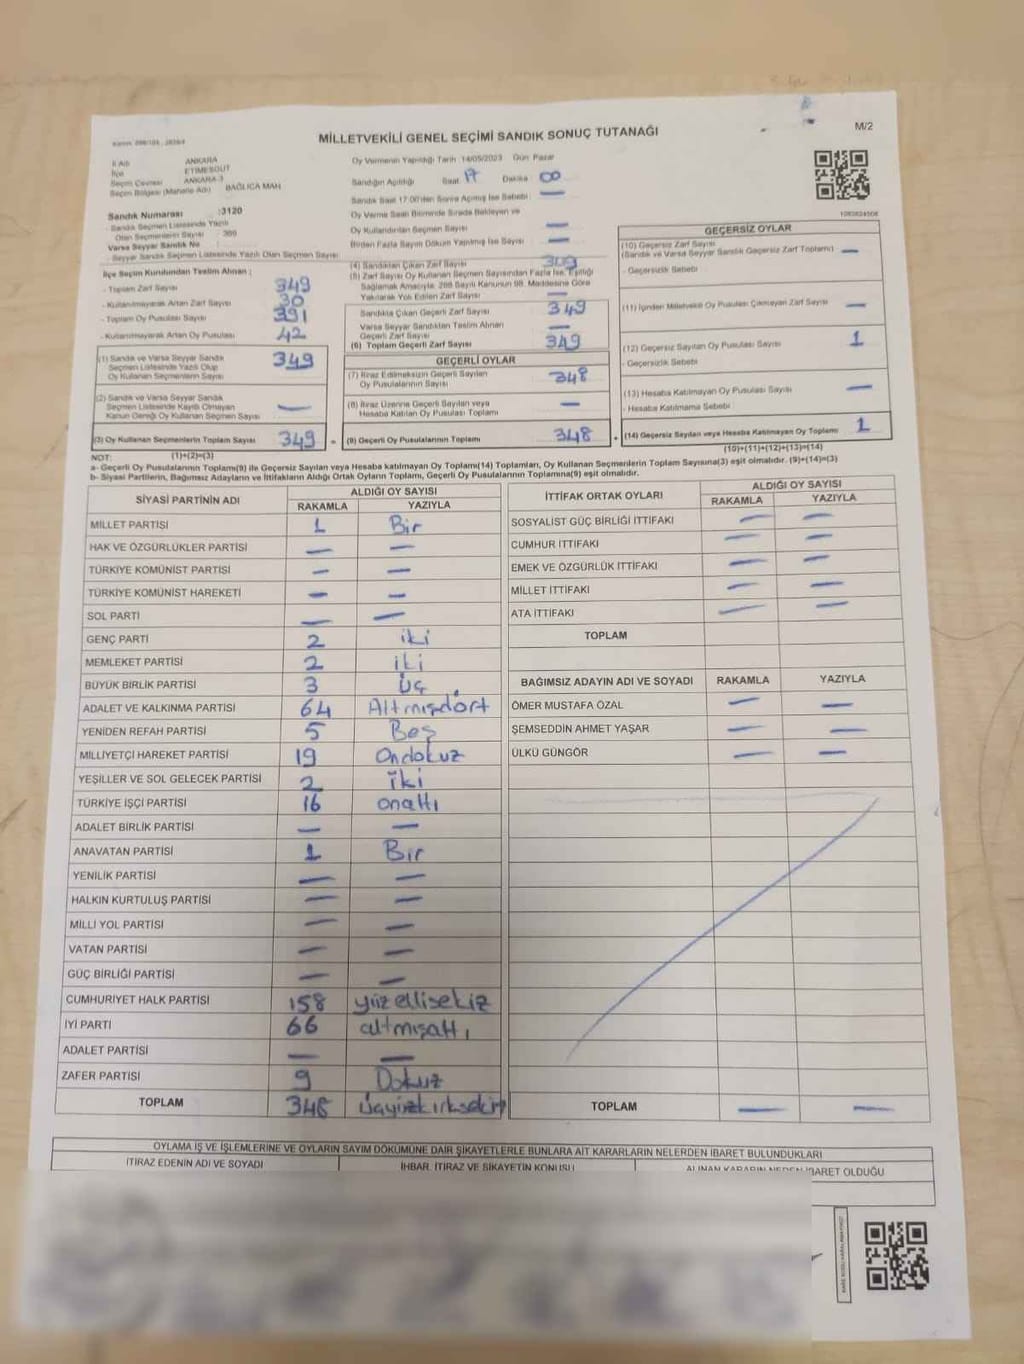 MİLLETVEKİLİ GENEL SEÇİMİ SANDIK SONUÇ TUTANAĞI
M/2
İl Adı ANKARA
İlçe ETİMESGUT
Seçim Çevresi ANKARA-3
Seçim Bölgesi (Mahalle Adı) BAĞLICA MAH
Sandık Numarası :3120
- Sandık Seçmen Listesinde Yazılı
Olan Seçmenlerin Sayısı
Varsa Seyyar Sandık No
- Seyyar Sandık Seçmen Listesinde Yazılı Olan Seçmen Sayısı
Oy Vermenin Yapıldığı Tarih 14/05/2023 Gün Pazar
Sandığın Açıldığı Saat 17 Dakika 00
Sandık Saat 17:00'den Sonra Açılmış İse Sebebi : —
Oy Verme Saati Bitiminde Sırada Bekleyen ve
Oy Kullandırılan Seçmen Sayısı —
Birden Fazla Sayım Döküm Yapılmış İse Sayısı —
İlçe Seçim Kurulundan Teslim Alınan ;
- Toplam Zarf Sayısı 349
- Kullanılmayarak Artan Zarf Sayısı 30
- Toplam Oy Pusulası Sayısı 391
- Kullanılmayarak Artan Oy Pusulası 42
(1) Sandık ve Varsa Seyyar Sandık
Seçmen Listesinde Yazılı Olup
Oy Kullanan Seçmenlerin Sayısı 349
(2) Sandık ve Varsa Seyyar Sandık
Seçmen Listesinde Kayıtlı Olmayan
Kanun Gereği Oy Kullanan Seçmen Sayısı —
(3) Oy Kullanan Seçmenlerin Toplam Sayısı 349 =
(1)+(2)=(3)
(4) Sandıktan Çıkan Zarf Sayısı
(5) Zarf Sayısı Oy Kullanan Seçmen Sayısından Fazla İse, Eşitliği
Sağlamak Amacıyla, 298 Sayılı Kanunun 98. Maddesine Göre
Yakılarak Yok Edilen Zarf Sayısı —
Sandıkta Çıkan Geçerli Zarf Sayısı 349
Varsa Seyyar Sandıktan Teslim Alınan
Geçerli Zarf Sayısı —
(6) Toplam Geçerli Zarf Sayısı 349
GEÇERLİ OYLAR
(7) İtiraz Edilmeksizin Geçerli Sayılan
Oy Pusulalarının Sayısı 348
(8) İtiraz Üzerine Geçerli Sayılan veya
Hesaba Katılan Oy Pusulası Toplamı —
(9) Geçerli Oy Pusulalarının Toplamı 348 +
GEÇERSİZ OYLAR
(10) Geçersiz Zarf Sayısı
(Sandık ve Varsa Seyyar Sandık Geçersiz Zarf Toplamı) —
- Geçersizlik Sebebi
(11) İçinden Milletvekili Oy Pusulası Çıkmayan Zarf Sayısı —
(12) Geçersiz Sayılan Oy Pusulası Sayısı 1
- Geçersizlik Sebebi
(13) Hesaba Katılmayan Oy Pusulası Sayısı —
- Hesaba Katılmama Sebebi
(14) Geçersiz Sayılan veya Hesaba Katılmayan Oy Toplamı 1
(10)+(11)+(12)+(13)=(14)
NOT:
a- Geçerli Oy Pusulalarının Toplamı(9) ile Geçersiz Sayılan veya Hesaba katılmayan Oy Toplamı(14) Toplamları, Oy Kullanan Seçmenlerin Toplam Sayısına(3) eşit olmalıdır. (9)+(14)=(3)
b- Siyasi Partilerin, Bağımsız Adayların ve İttifakların Aldığı Ortak Oyların Toplamı, Geçerli Oy Pusulalarının Toplamına(9) eşit olmalıdır.
SİYASİ PARTİNİN ADI ALDIĞI OY SAYISI
RAKAMLA YAZIYLA
MİLLET PARTİSİ 1 Bir
HAK VE ÖZGÜRLÜKLER PARTİSİ — —
TÜRKİYE KOMÜNİST PARTİSİ — —
TÜRKİYE KOMÜNİST HAREKETİ — —
SOL PARTİ — —
GENÇ PARTİ 2 iki
MEMLEKET PARTİSİ 2 iki
BÜYÜK BİRLİK PARTİSİ 3 Üç
ADALET VE KALKINMA PARTİSİ 64 Altmışdört
YENİDEN REFAH PARTİSİ 5 Beş
MİLLİYETÇİ HAREKET PARTİSİ 19 Ondokuz
YEŞİLLER VE SOL GELECEK PARTİSİ 2 iki
TÜRKİYE İŞÇİ PARTİSİ 16 onaltı
ADALET BİRLİK PARTİSİ — —
ANAVATAN PARTİSİ 1 Bir
YENİLİK PARTİSİ — —
HALKIN KURTULUŞ PARTİSİ — —
MİLLİ YOL PARTİSİ — —
VATAN PARTİSİ — —
GÜÇ BİRLİĞİ PARTİSİ — —
CUMHURİYET HALK PARTİSİ 158 yüzellisekiz
İYİ PARTİ 66 altmışaltı
ADALET PARTİSİ — —
ZAFER PARTİSİ 9 Dokuz
TOPLAM 348
İTTİFAK ORTAK OYLARI ALDIĞI OY SAYISI
RAKAMLA YAZIYLA
SOSYALİST GÜÇ BİRLİĞİ İTTİFAKI — —
CUMHUR İTTİFAKI — —
EMEK VE ÖZGÜRLÜK İTTİFAKI — —
MİLLET İTTİFAKI — —
ATA İTTİFAKI — —
TOPLAM
BAĞIMSIZ ADAYIN ADI VE SOYADI RAKAMLA YAZIYLA
ÖMER MUSTAFA ÖZAL — —
ŞEMSEDDİN AHMET YAŞAR — —
ÜLKÜ GÜNGÖR — —
TOPLAM — —
OYLAMA İŞ VE İŞLEMLERİNE VE OYLARIN SAYIM DÖKÜMÜNE DAİR ŞİKAYETLERLE BUNLARA AİT KARARLARIN NELERDEN İBARET BULUNDUKLARI
İTİRAZ EDENİN ADI VE SOYADI
İHBAR, İTİRAZ VE ŞİKAYETİN KONUSU
ALINAN KARARIN NEDEN İBARET OLDUĞU